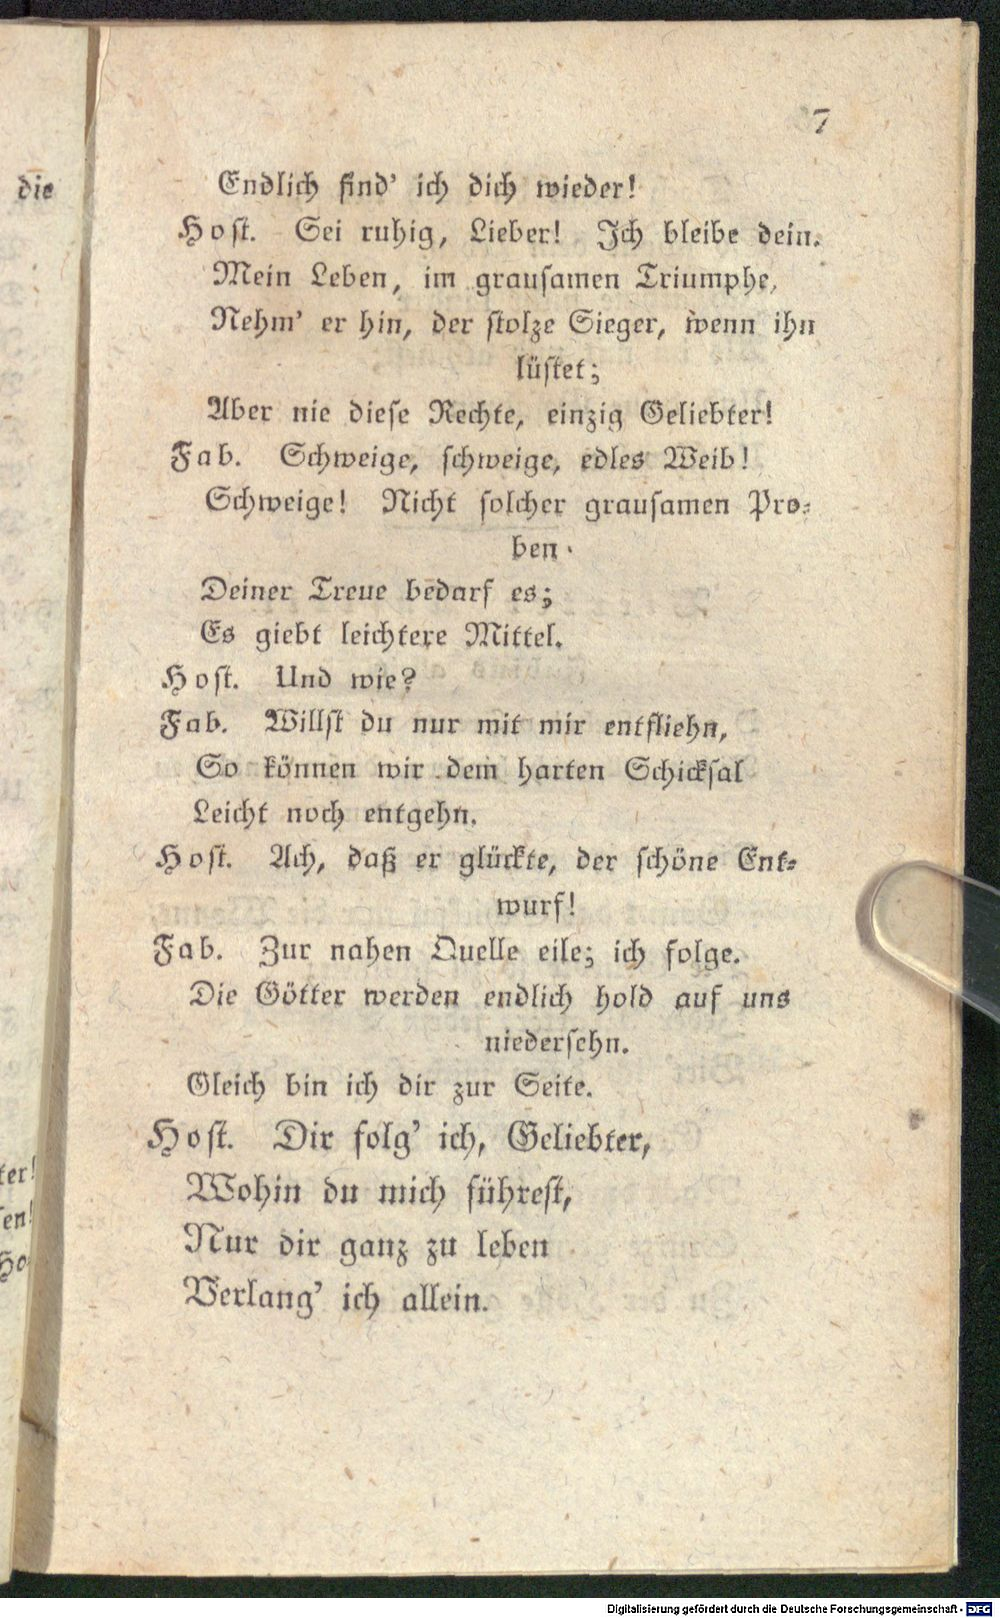 7
die
Endlich find' ich dich wieder!
Host. Sei ruhig, Lieber! Ich bleibe dein.
Mein Leben, im grausamen Triumphe,
Nehm' er hin, der stolze Sieger, wenn ihn
lüstet;
Aber nie diese Rechte, einzig Geliebter!
Fab. Schweige, schweige, edles Weib!
Schweige! Nicht solcher grausamen Pro-
ben
Deiner Treue bedarf es;
Es giebt leichtere Mittel.
Host. Und wie?
Fab. Willst du nur mit mir entfliehn,
So können wir dem harten Schicksal
Leicht noch entgehn.
Host. Ach, daß er glückte, der schöne Ent-
wurf!
Fab. Zur nahen Quelle eile; ich folge.
Die Götter werden endlich hold auf uns
niedersehn.
Gleich bin ich dir zur Seite.
Host. Dir folg' ich, Geliebter,
Wohin du mich führest,
Nur dir ganz zu leben
Verlang' ich allein.
Digitalisierung gefördert durch die Deutsche Forschungsgemeinschaft - DFG